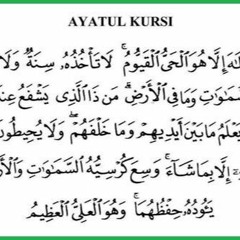 AYATUL KURSI
لَآ إِلَٰهَ إِلَّا هُوَ الْحَىُّ الْقَيُّومُ ۚ لَا تَأْخُذُهُ سِنَةٌ وَلَا
السَّمَٰوَٰتِ وَمَا فِى الْأَرْضِ ۗ مَن ذَا الَّذِى يَشْفَعُ عِنْدَ
يَعْلَمُ مَا بَيْنَ أَيْدِيهِمْ وَمَا خَلْفَهُمْ ۖ وَلَا يُحِيطُونَ
إِلَّا بِمَا شَآءَ ۚ وَسِعَ كُرْسِيُّهُ السَّمَٰوَٰتِ وَالْأَ
يَـُٔودُهُ حِفْظُهُمَا ۚ وَهُوَ الْعَلِىُّ الْعَظِيمُ